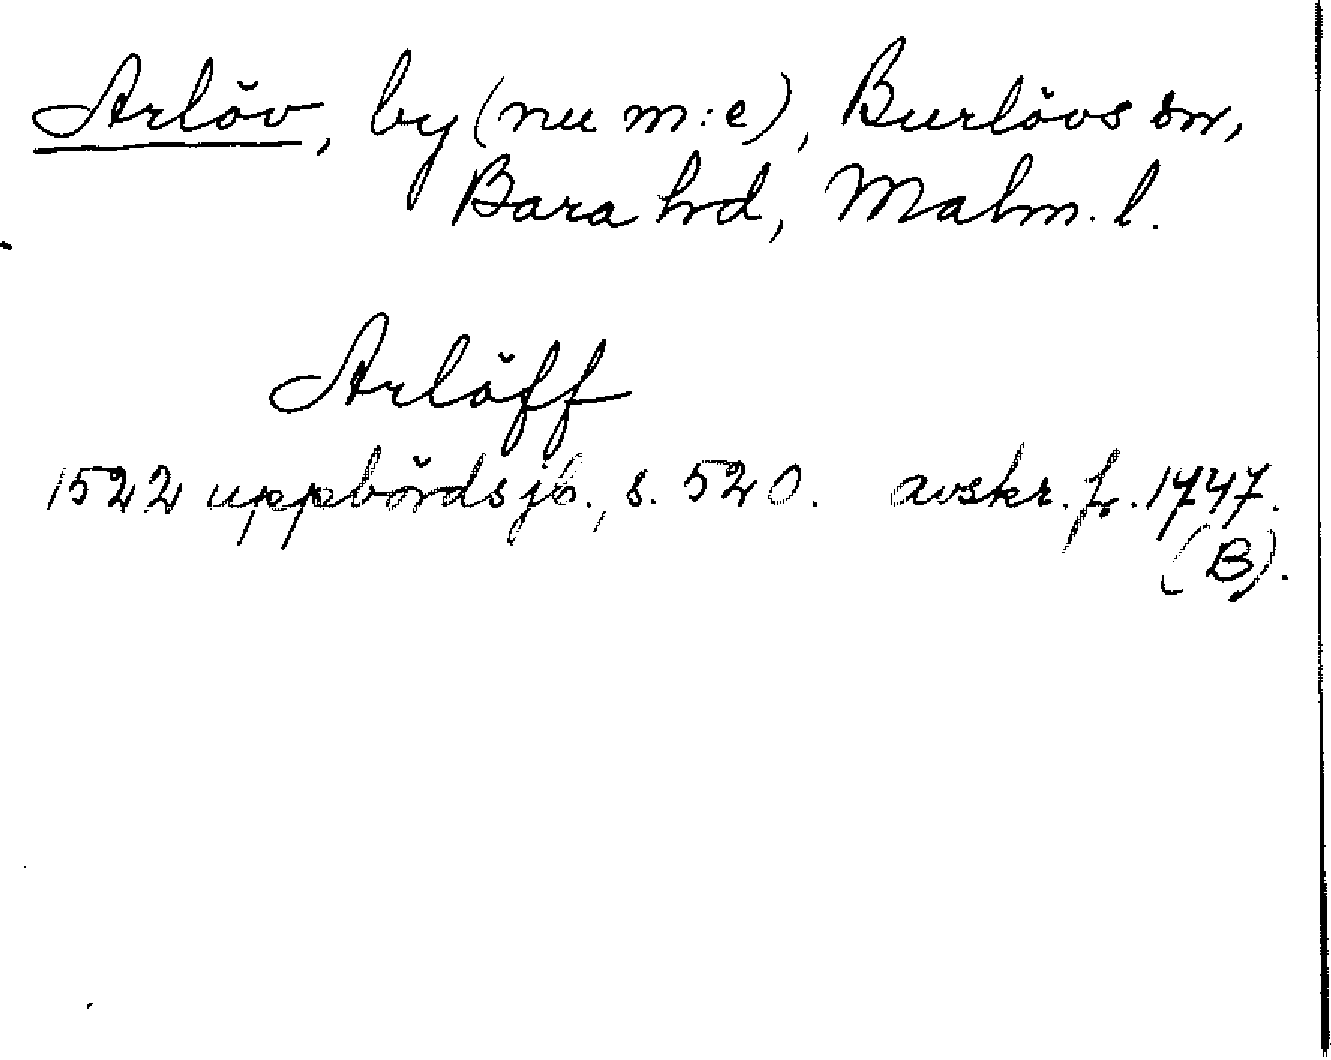 Arlöv, by (nu m:e), Burlövs sn,
Bara hd, Malm. l.
Arlöff
1522 uppbördsjb., s. 520. avskr. fr. 1747.
(B).